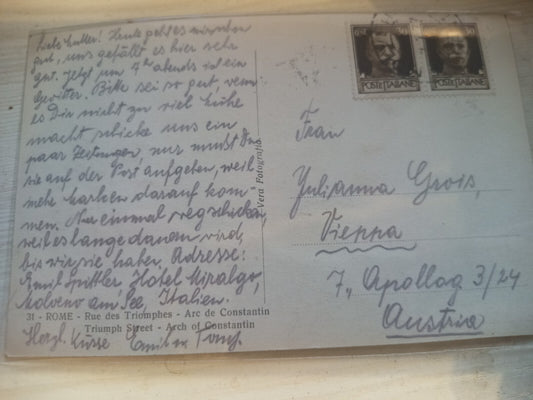 Liebe Mutter! Heute geht es mir schon
gut, uns gefällt es hier sehr
gut. Jetzt um 5h abends ist ein
Gewitter. Bitte sei so gut, wenn
es Dir nicht zu viel Mühe
macht schicke uns ein
paar Zeitungen nur mußt Du
sie auf der Post aufgeben, weil
mehr Marken darauf kom
men. Nur einmal wegschicken,
weil es lange dauern wird,
bis wir sie haben. Adresse:
Emil Spittler, Hotel Miralgo,
Molveno am See, Italien.
31 - ROME - Rue des Triomphes - Arc de Constantin
Triumph Street - Arch of Constantin
Herzl. Küsse Emil u.
Vera Fotografia
POSTE ITALIANE
POSTE ITALIANE
Frau
Julianna Grois,
Vienna
7., Apollog 3/24
Austria